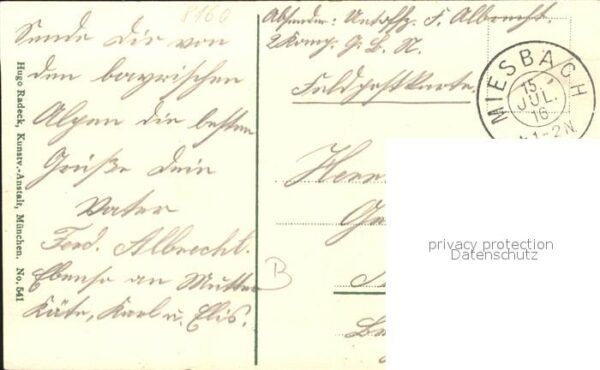 8160
Sende Dir von
den bayrischen
Alpen die besten
Grüße Dein
Vater
Ferd. Albrecht.
Ebenso an Mutter
Käte, Karl u. Elis.
Hugo Radeck, Kunstv.-Anstalt, München. No. 541
Absender: Untoffz. F. Albrecht.
2 Komp.
Feldpostkarte
MIESBACH
15.
JUL.
16
1-2N
Herrn
B
privacy protection
Datenschutz